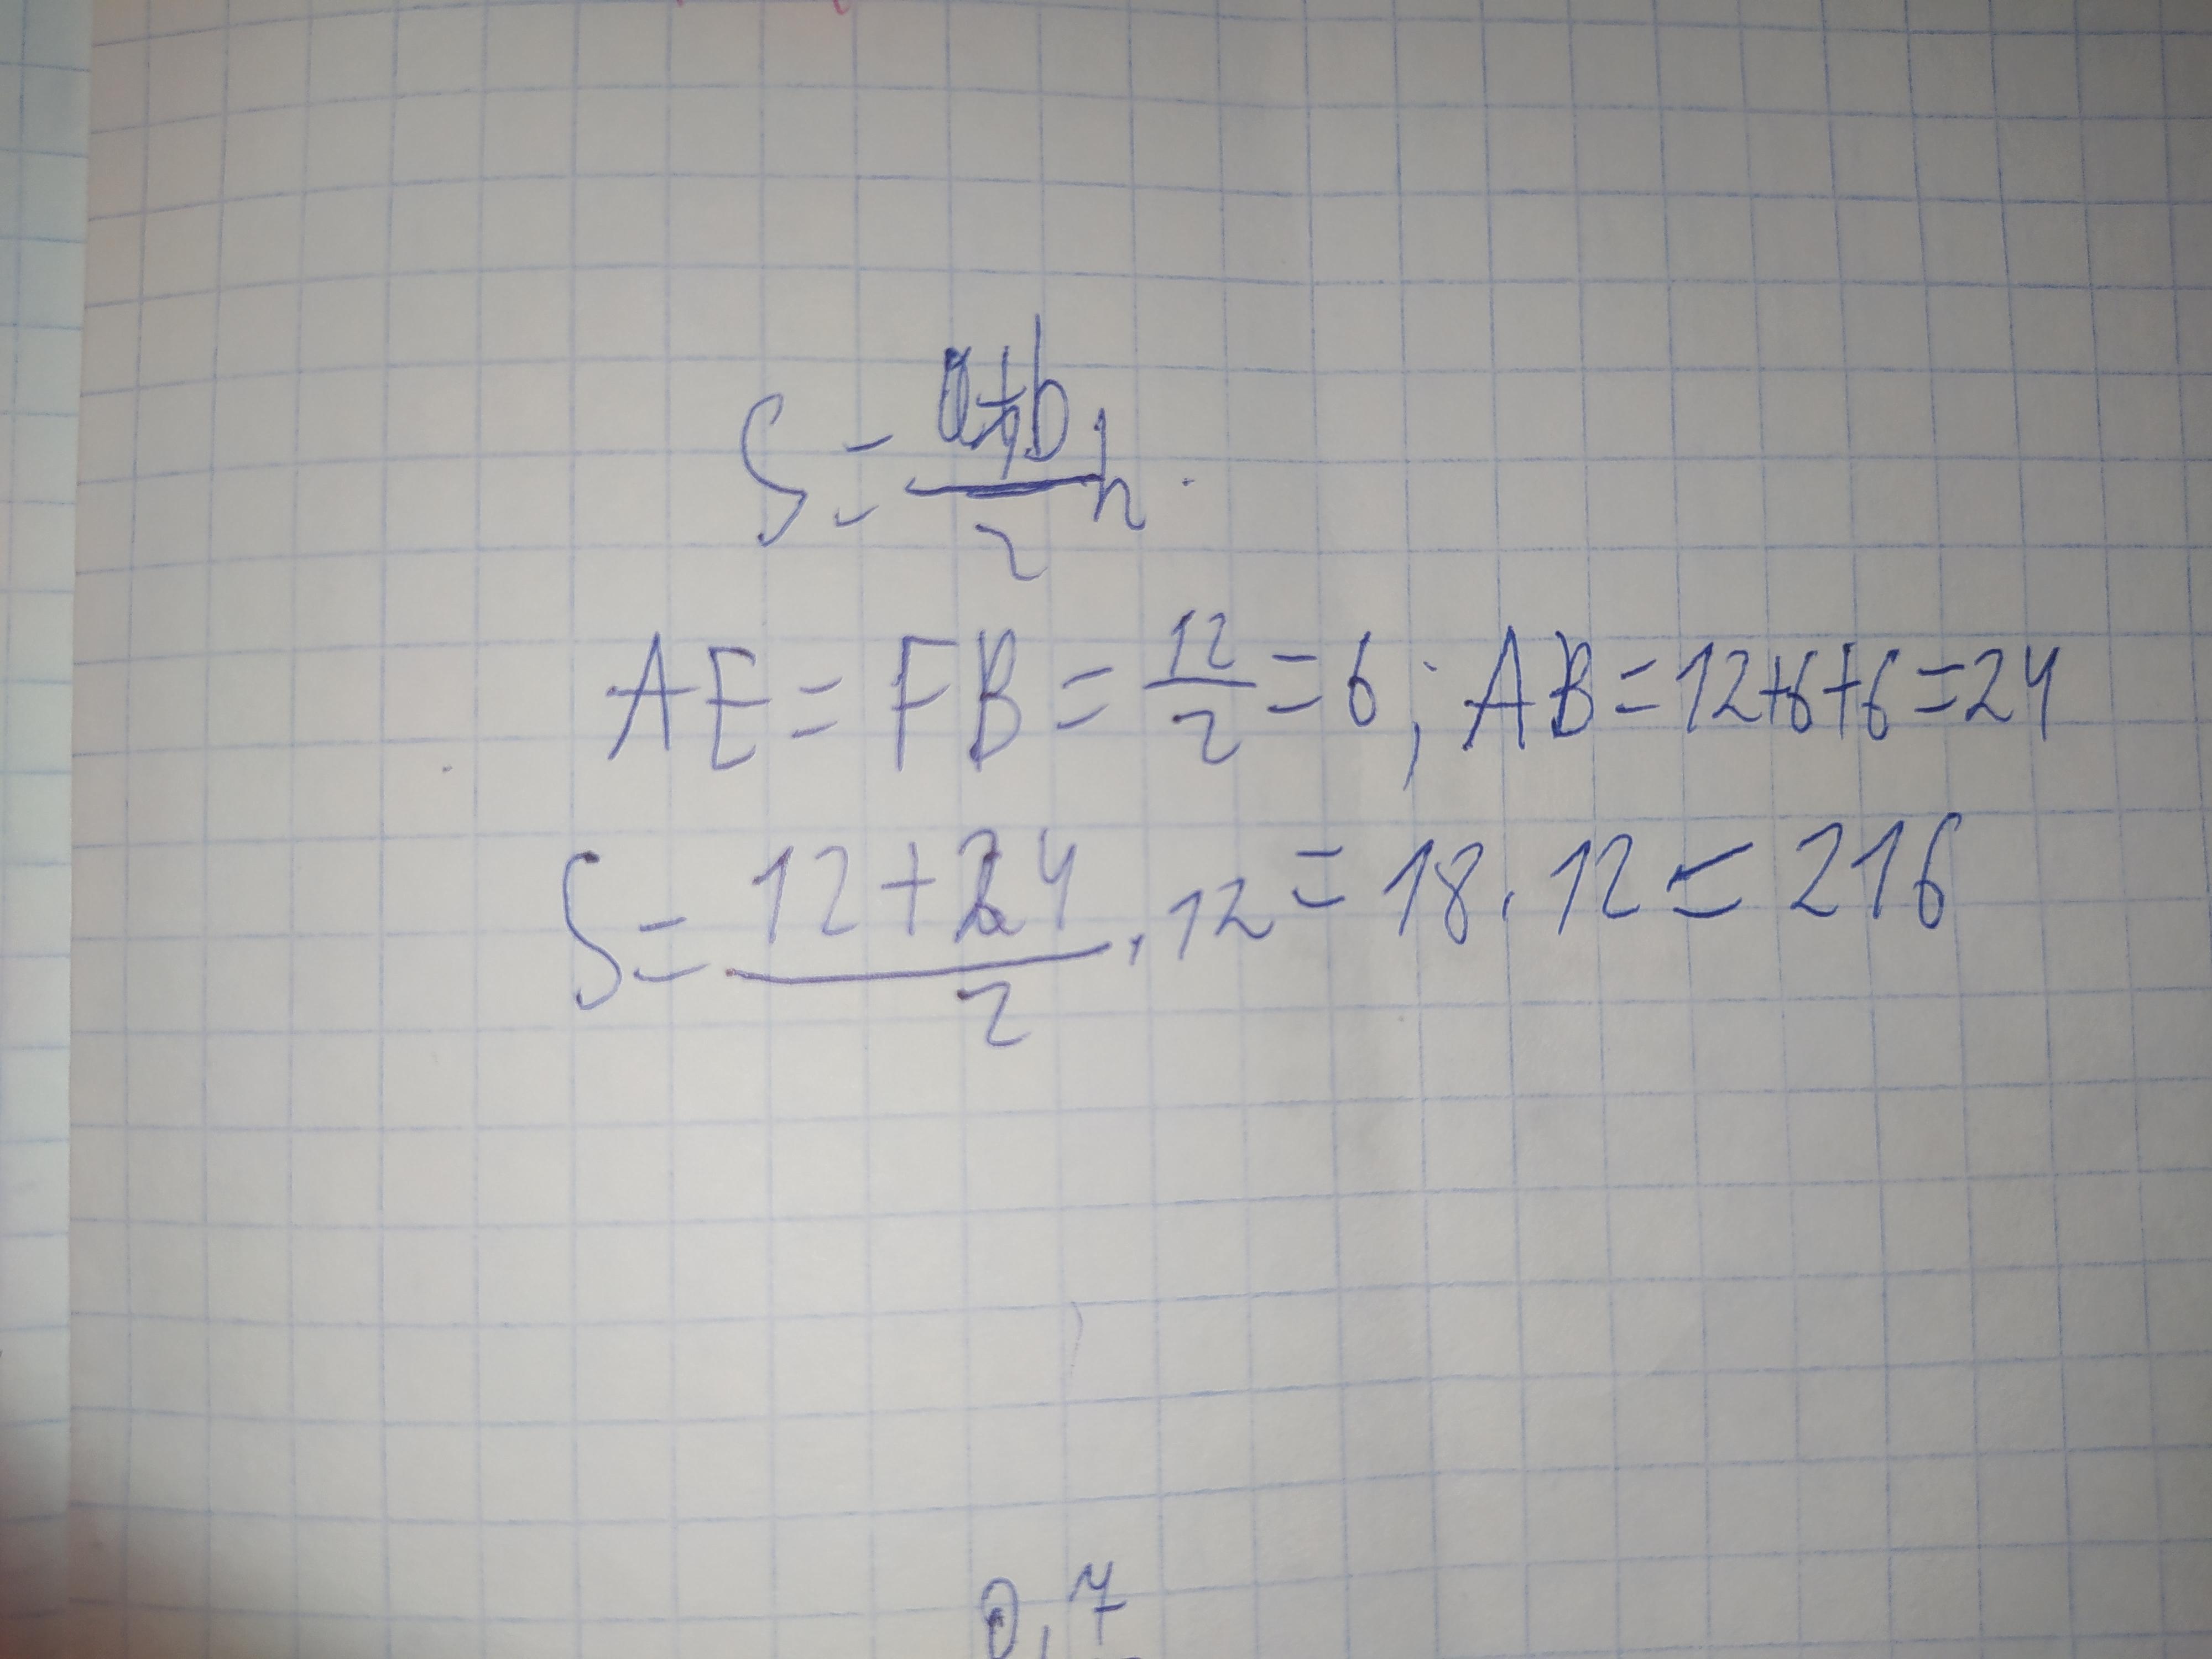 S = a+b/2 h.
AE = FB = 12/2 = 6; AB = 12+6+6 = 24
S = 12+24/2 · 12 = 18 · 12 = 216
0,7